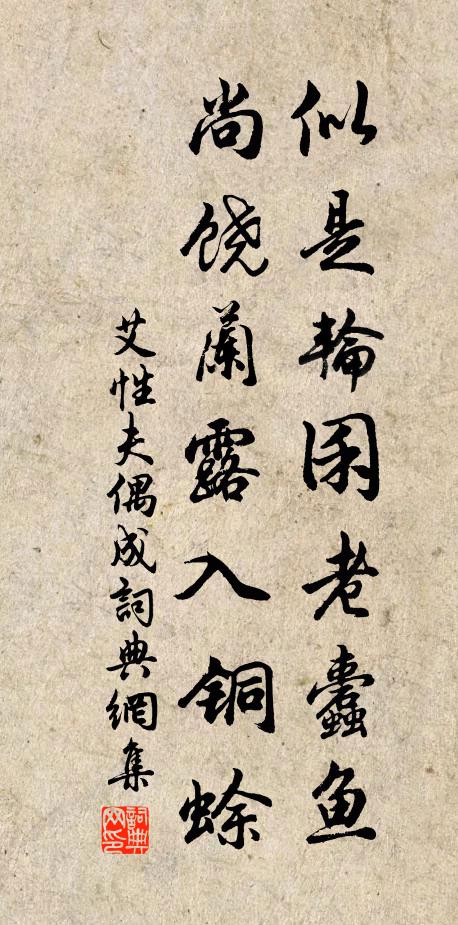 似是輪囷老蠹鱼
尚饶蘭露入铜蜍
艾性夫偶成詞典網集
詞典网印